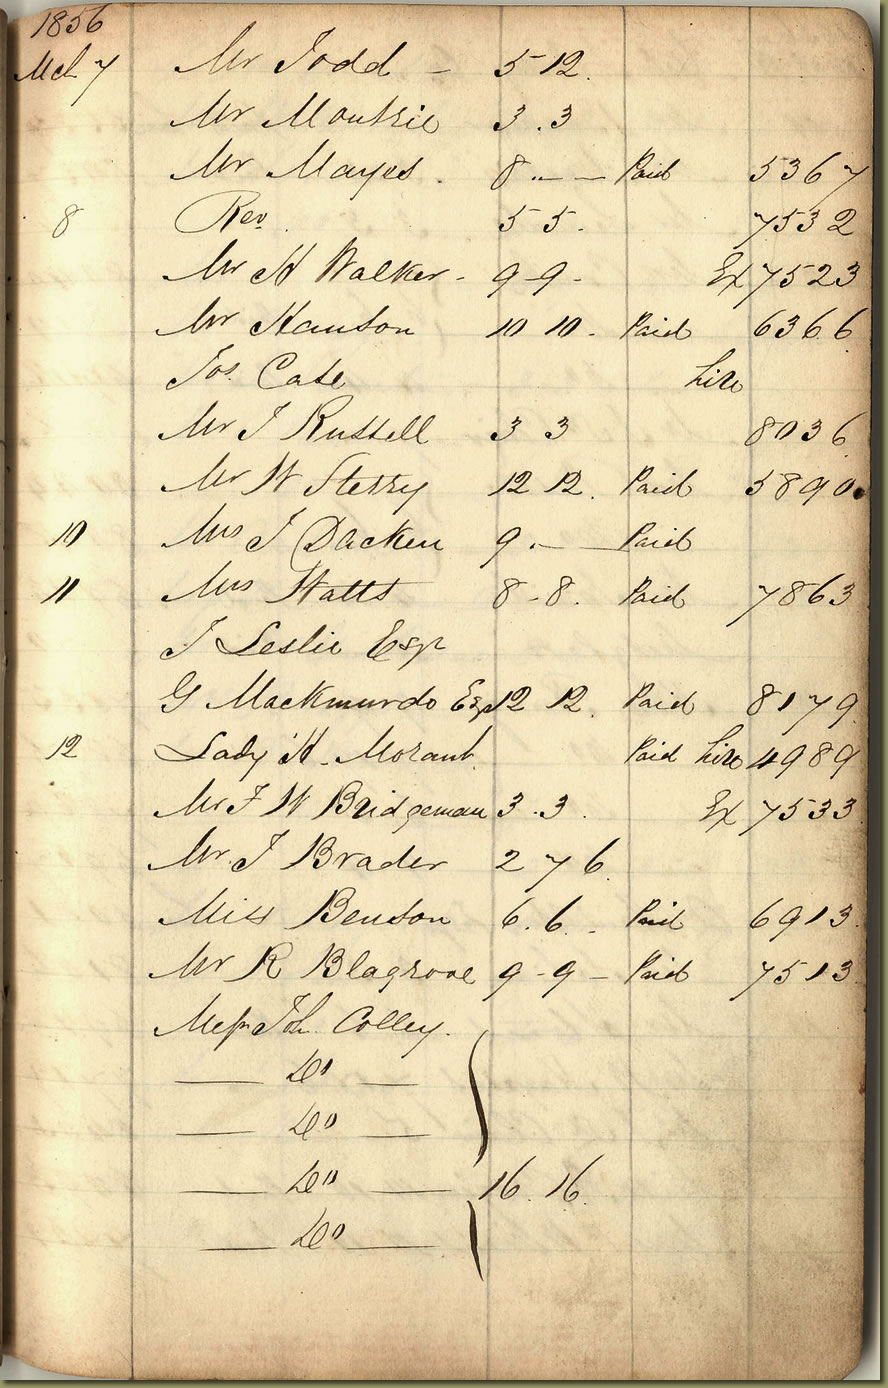 1856
Mch 7 Mr Todd - 5 12.
Mr Moutrie 3.3
Mr Mayes. 8 .-- Paid 5367
8 Rev. 5 5. 7532
Mr H Walker - 9-9- Ex 7523
Mr Hanson 10 10 - Paid 6366
Jos. Case hire
Mr J Russell 3 3 8036
Mr W Sterry 12 12. Paid 5890
10 Mrs J Dacken 9.-- Paid
11 Mrs Watts 8-8. Paid 7863
J Leslie Esqr
G Mackmurdo Esqr 12 12. Paid 8179
12 Lady H. Morant. Paid hire 4989
Mr F W Bridgeman 3.3. Ex 7533
Mr. J Brader 2 7 6.
Miss Benson 6.6.- Paid 6913.
Mr R Blagrove 9-9- Paid 7513
Messrs Colley.
— Do —
— Do —
— Do — 16.16.
— Do —